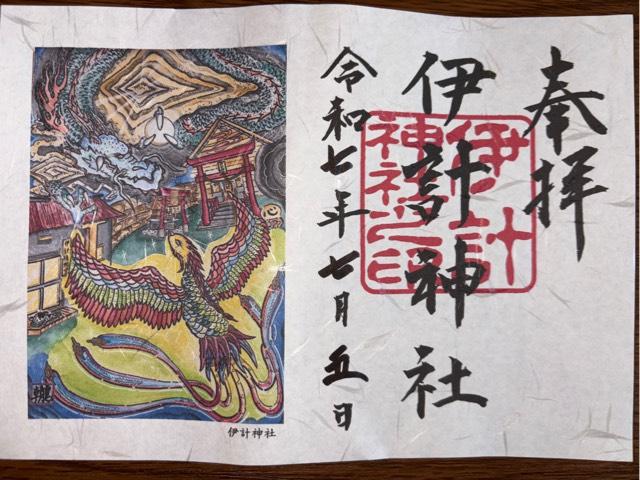 奉拝
伊計神社
伊計
神社之印
令和七年七月五日
伊計神社